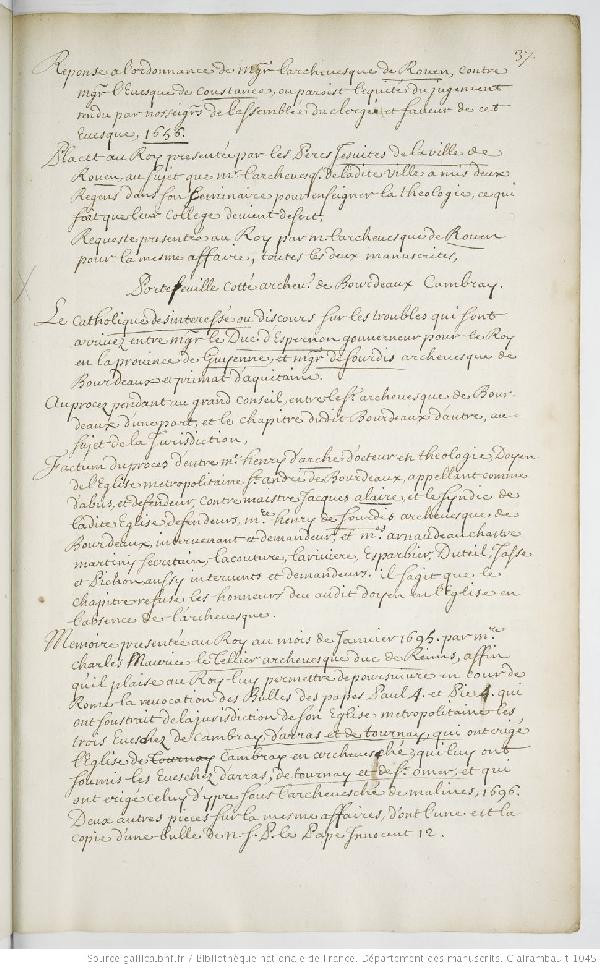 37.
Reponse a l'ordonnance de mgr. l'archevesque de Rouen, contre
mgr. l'Evesque de Coustances, ou paroist l'equité du jugement
rendu par nosseigrs. de l'assemblée du clergé et faveur de cet
Evesque, 1656.
Placet au Roy presenté par les Peres Jesuites de la ville de
Rouen, au sujet que mr. l'archevesq. de ladite ville a mis deux
Regens dans son seminaire pour enseigner la theologie, ce qui
fait que leur College devient desert.
Requeste presentée au Roy par mr. l'archevesque de Rouen
pour la mesme affaire, toutes les deux manuscrites,
Portefeuille cotté archev. de Bourdeaux Cambray.
Le Catholique desinteressé ou discours sur les troubles qui sont
arrivez entre mgr. le Duc d'Espernon gouverneur pour le Roy
en la province de Guyenne, et mgr. de Sourdis archevesque de
Bourdeaux et primat d'aquitaine.
Au procez pendant au grand Conseil, entre le Sr. archevesque de Bour-
deaux d'une part, et le chapitre dudit Bourdeaux d'autre, au
sujet de la Jurisdiction,
Factum du procez d'entre mr. henry d'arche Docteur en theologie Doyen
de l'Eglise metropolitaine St. andré de Bourdeaux, appellant comme
d'abus, et defendeur, contre maistre Jacques alaire, et le syndic de
ladite Eglise defendeurs, mre. henry de Sourdis archevesque de
Bourdeaux, intervenant et demandeur, et mes. arnaud euchartre
martiny secretain, Lacouture, Lariviere, Esparbier, Duteil, Jasse
et Pichon aussy intervents et demandeurs. il s'agit que le
chapitre refuse les honneurs deu audit doyen en l'Eglise en
l'absence de l'archevesque.
Memoire presentée au Roy au mois de Janvier 1695. par mre.
Charles Maurice le Tellier archevesque duc de Reims, affin
qu'il plaise au Roy luy permettre de poursuivre en cour de
Rome la revocation des Bulles des papes Paul 4. et Pie 4. qui
ont soustrait de la jurisdiction de son Eglise metropolitaine les
trois Eveschez de Cambray, d'arras et de tournay, qui ont erigé
l'Eglise de tournay Cambray en archevesché z qui luy ont
soumis les Eveschez d'arras, de tournay et de St. omer, et qui
ont erigé celuy d'ypre sous l'archevesché de malines, 1696.
Deux autres pieces sur la mesme affaires, d'ont l'une est la
copie d'une bulle de n. S. P. le Pape Innocent 12.
Source gallica.bnf.fr / Bibliothèque nationale de France. Département des manuscrits. Clairambault 1045